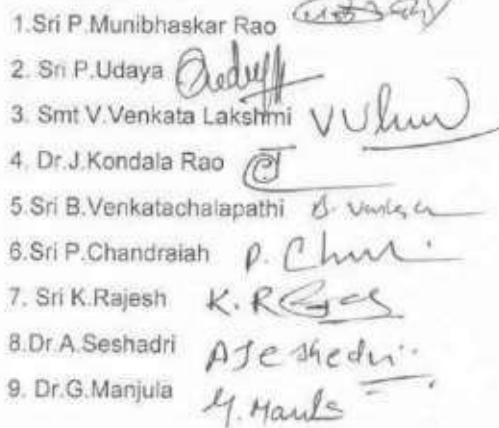 1.Sri P.Munibhaskar Rao
2. Sri P.Udaya
3. Smt V.Venkata Lakshmi
4. Dr.J.Kondala Rao
5.Sri B.Venkatachalapathi
6.Sri P.Chandraiah P.
7. Sri K.Rajesh K. R
8.Dr.A.Seshadri
9. Dr.G.Manjula